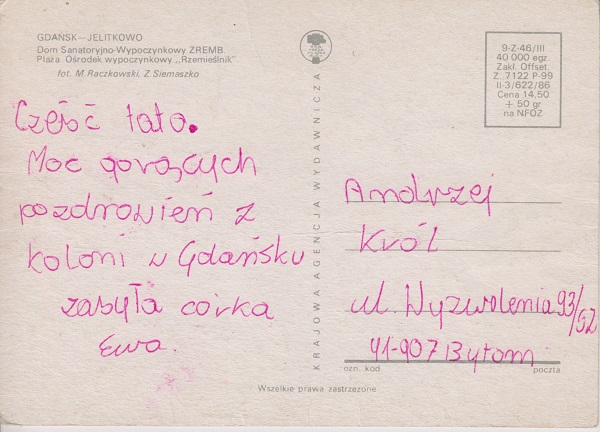 GDAŃSK—JELITKOWO
Dom Sanatoryjno-Wypoczynkowy ZREMB.
Plaża Ośrodek wypoczynkowy „Rzemieślnik"
fot. M. Raczkowski, Z. Siemaszko
9-Z-46/III
40 000 egz.
Zakł. Offset.
Z. 7122 P-99
II-3/622/86
Cena 14,50
+ 50 gr
na NFOZ
Cześć tato.
Moc gorących
pozdrowień z
koloni w Gdańsku
zasyła córka
Ewa.
KRAJOWA AGENCJA WYDAWNICZA
Andrzej
Król
ul. Wyzwolenia 93/52
41-907 Bytom
ozn. kod
poczta
Wszelkie prawa zastrzeżone